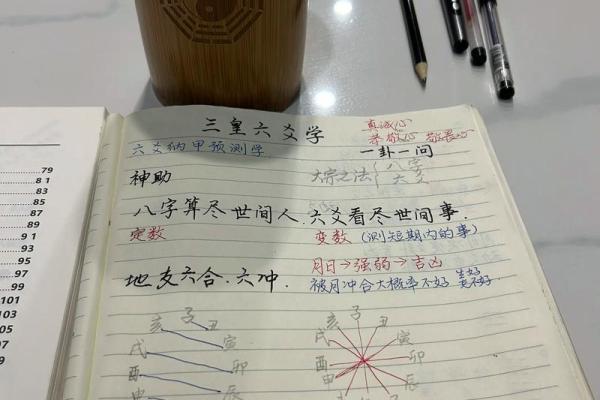 三皇六爻学
真诚心
恭敬心 敬畏心
六爻纳甲预测学
一卦一问
神助
大宗之法 八字
六爻
八字算尽世间人.六爻看尽世间事.
定数
变数(测短期内的事)
月日→强弱→吉凶
地支六合.六冲.
被月冲合大概率不好
亥 子 丑
戌 寅
酉 卯
申 辰
亥 子 丑
戌 寅
酉 卯
申 辰
79
81
85
87
89
91
93
95
97
99
101
103
105
105
107
109